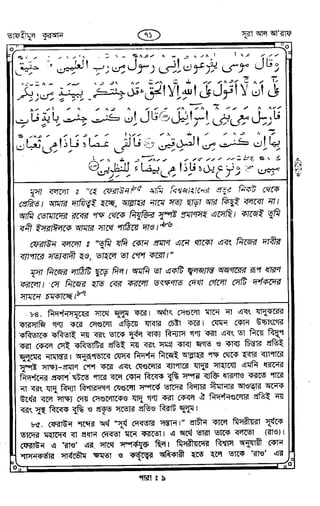 তাফহীমুল কুরআন
৭১
সূরা আল আ'রাফ
وَقَالَ مُوسَىٰ يَفِرْعَوْنُ إِنِّي رَسُولٌ مِّن رَّبِّ الْعَلَمِينَ ۝ حَقِيقٌ
عَلَىٰ أَن لَّا أَقُولَ عَلَى اللَّهِ إِلَّا الْحَقَّ قَدْ جِئْتُكُم بِبَيِّنَةٍ مِّن رَّبِّكُمْ
فَأَرْسِلْ مَعِيَ بَنِي إِسْرَائِيلَ ۝ قَالَ إِن كُنتَ جِئْتَ بِآيَةٍ فَأْتِ
بِهَا إِن كُنتَ مِنَ الصَّدِقِينَ ۝ فَأَلْقَىٰ عَصَاهُ فَإِذَا هِيَ ثُعْبَانٌ
مُّبِينٌ ۝ وَنَزَعَ يَدَهُ فَإِذَا هِيَ بَيْضَاءُ لِلنَّظِرِينَ ۝
মূসা বললো : "হে ফেরাউন!৮৫ আমি বিশ্বজাহানের প্রভুর নিকট থেকে
প্রেরিত। আমার দায়িত্বই হচ্ছে, আল্লাহর নামে সত্য ছাড়া আর কিছুই বলবো না।
আমি তোমাদের রবের পক্ষ থেকে নিযুক্তির সুস্পষ্ট প্রমাণসহ এসেছি। কাজেই তুমি
বনী ইসরাঈলকে আমার সাথে পাঠিয়ে দাও।"৮৬
ফেরাউন বললো : "তুমি যদি কোন প্রমাণ এনে থাকো এবং নিজের দাবীর
ব্যাপারে সত্যবাদী হও, তাহলে তা পেশ করো।"
মূসা নিজের লাঠিটি ছুড়ে দিল। অমনি তা একটি জ্বলজ্যান্ত অজগরের রূপ ধারণ
করলো। সে নিজের হাত বের করলো তৎক্ষণাত দেখা গেলো সেটি দর্শকদের
সামনে চমকাচ্ছে।৮৭
৮৪. নিদর্শনসমূহের সাথে জুলুম করা। অর্থাৎ সেগুলো মানে না এবং যাদুকরের
কারসাজি গণ্য করে সেগুলো এড়িয়ে যাবার চেষ্টা করে। যেমন কোন উচ্চাংগের
কবিতাকে কবিতাই নয় বরং তাকে দুর্বল বাক্য বিন্যাস গণ্য করা এবং তা নিয়ে বিদ্রূপ
করা কেবল সেই কবিতাটির প্রতিই নয় বরং সমগ্র কাব্য জগত ও কাব্য চিন্তার প্রতিই
জুলুমের নামান্তর। অনুরূপভাবে যেসব নিদর্শন নিজেই আল্লাহর পক্ষ থেকে হবার ব্যাপারে
সুস্পষ্ট সাক্ষ্য-প্রমাণ পেশ করে এবং যেগুলোর ব্যাপারে যাদুর সাহায্যে এমনি ধরনের
নিদর্শনের প্রকাশ ঘটতে পারে বলে কোন বিবেক বুদ্ধি সম্পন্ন ব্যক্তি ধারণাও করতে পারে
না বরং যাদু বিদ্যা বিশারদগণ যেগুলো সম্পর্কে তাদের বিদ্যার সীমানার আওতার অনেক
উর্ধের বলে সাক্ষ্য দেয় সেগুলোকেও যাদু গণ্য করা কেবল ঐ নিদর্শনগুলোর প্রতিই নয়
বরং সুস্থ বিবেক বুদ্ধি ও প্রকৃত সত্যের প্রতিও বিরাট জুলুম।
৮৫. ফেরাউন শব্দের অর্থ "সূর্য দেবতার সন্তান।" প্রাচীন কালে মিসরীয়রা সূর্যকে
তাদের মহাদেব বা প্রধান দেবতা মনে করতো। এ অর্থে তারা তাকে বলতো (রাও)।
ফেরাউন এ 'রাও' এর সাথে সম্পর্কযুক্ত ছিল। মিসরীয়দের বিশ্বাস অনুযায়ী কোন
শাসনকর্তার সার্বভৌম ক্ষমতা ও কর্তৃত্বের অধিকারী হতে হলে তাকে 'রাও' এর
পারা : ৯